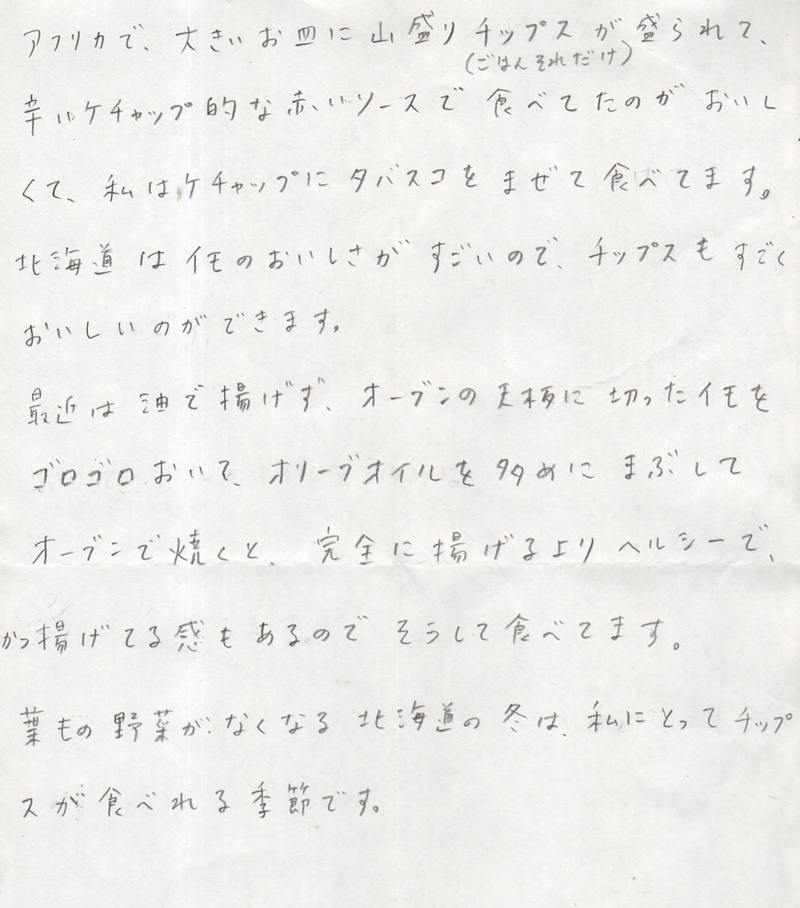 アフリカで、大きいお皿に山盛りチップスが盛られて、
(ごはんそれだけ)
辛いケチャップ的な赤いソースで食べてたのがおいし
くて、私はケチャップにタバスコをまぜて食べてます。
北海道はイモのおいしさがすごいので、チップスもすごく
おいしいのができます。
最近は油で揚げず、オーブンの天板に切ったイモを
ゴロゴロおいて、オリーブオイルを多めにまぶして
オーブンで焼くと、完全に揚げるよりヘルシーで、
かつ揚げてる感もあるのでそうして食べてます。
葉もの野菜がなくなる北海道の冬は、私にとってチップ
スが食べれる季節です。